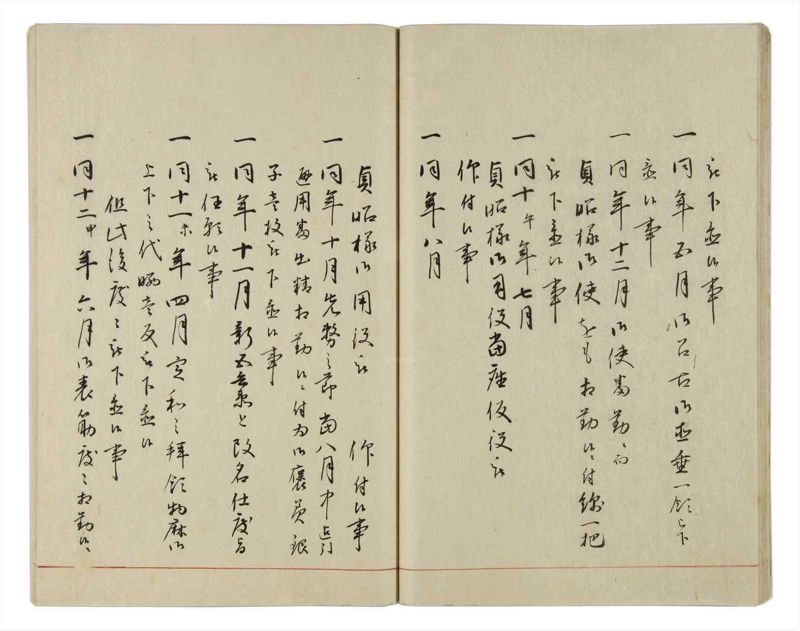 被下置候事
一同年五月御召古御直垂一領被下
置候事
一同年十二月御使番勤ニ而
貞昭様御使をも相勤候ニ付綿一把
被下置候事
一同十午年七月
貞昭様御用役当座仮役被
仰付候事
一同年八月
貞昭様御用役被 仰付候事
一同年十月先勢之節当八月中
御用番出精相勤候ニ付為御褒美銀
子壱枚被下置候事
一同年十一月新五兵衛と改名仕度旨
被任願候事
一同十一未年四月定和之拝領物麻御
上下之代壱反被下置候
但此後度々被下置候事
一同十二申年六月御表筋度々相勤候